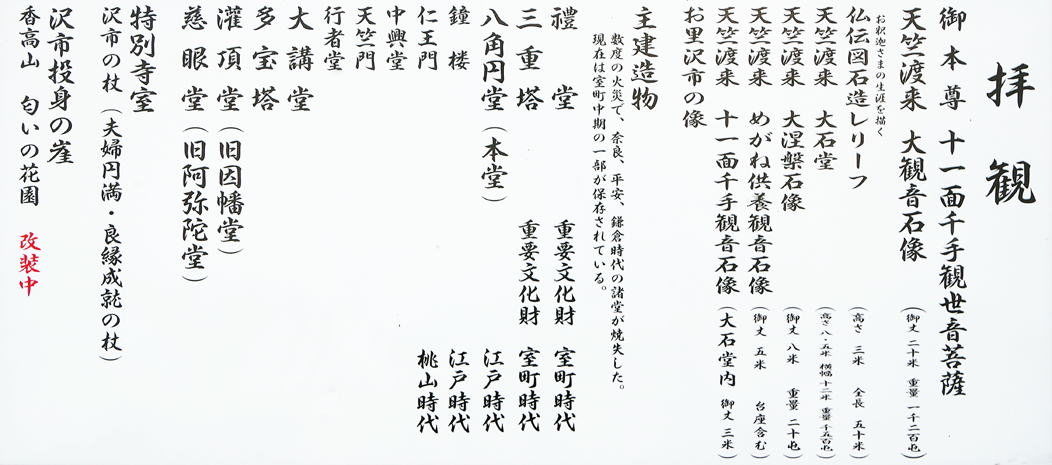 拝観
御本尊 十一面千手観世音菩薩
天竺渡来 大観音石像 (御丈 二十米 重量 一千二百屯)
お釈迦さまの生涯を描く
仏伝図石造レリーフ (高さ 三米 全長 五十米)
天竺渡来 大石堂 (高さ八・五米 横幅十二米 重量千五百屯)
天竺渡来 大涅槃石像 (御丈 八米 重量 二十屯)
天竺渡来 めがね供養観音石像 (御丈 五米 台座含む)
天竺渡来 十一面千手観音石像 (大石堂内 御丈 三米)
お里沢市の像
主建造物
数度の火災で、奈良、平安、鎌倉時代の諸堂が焼失した。
現在は室町中期の一部が保存されている。
禮堂 重要文化財 室町時代
三重塔 重要文化財 室町時代
八角円堂(本堂) 江戸時代
鐘楼 江戸時代
仁王門 桃山時代
中興堂
天竺門
行者堂
大講堂
多宝塔
灌頂堂(旧因幡堂)
慈眼堂(旧阿弥陀堂)
特別寺室
沢市の杖(夫婦円満・良縁成就の杖)
沢市投身の崖
香高山 匂いの花園 改装中